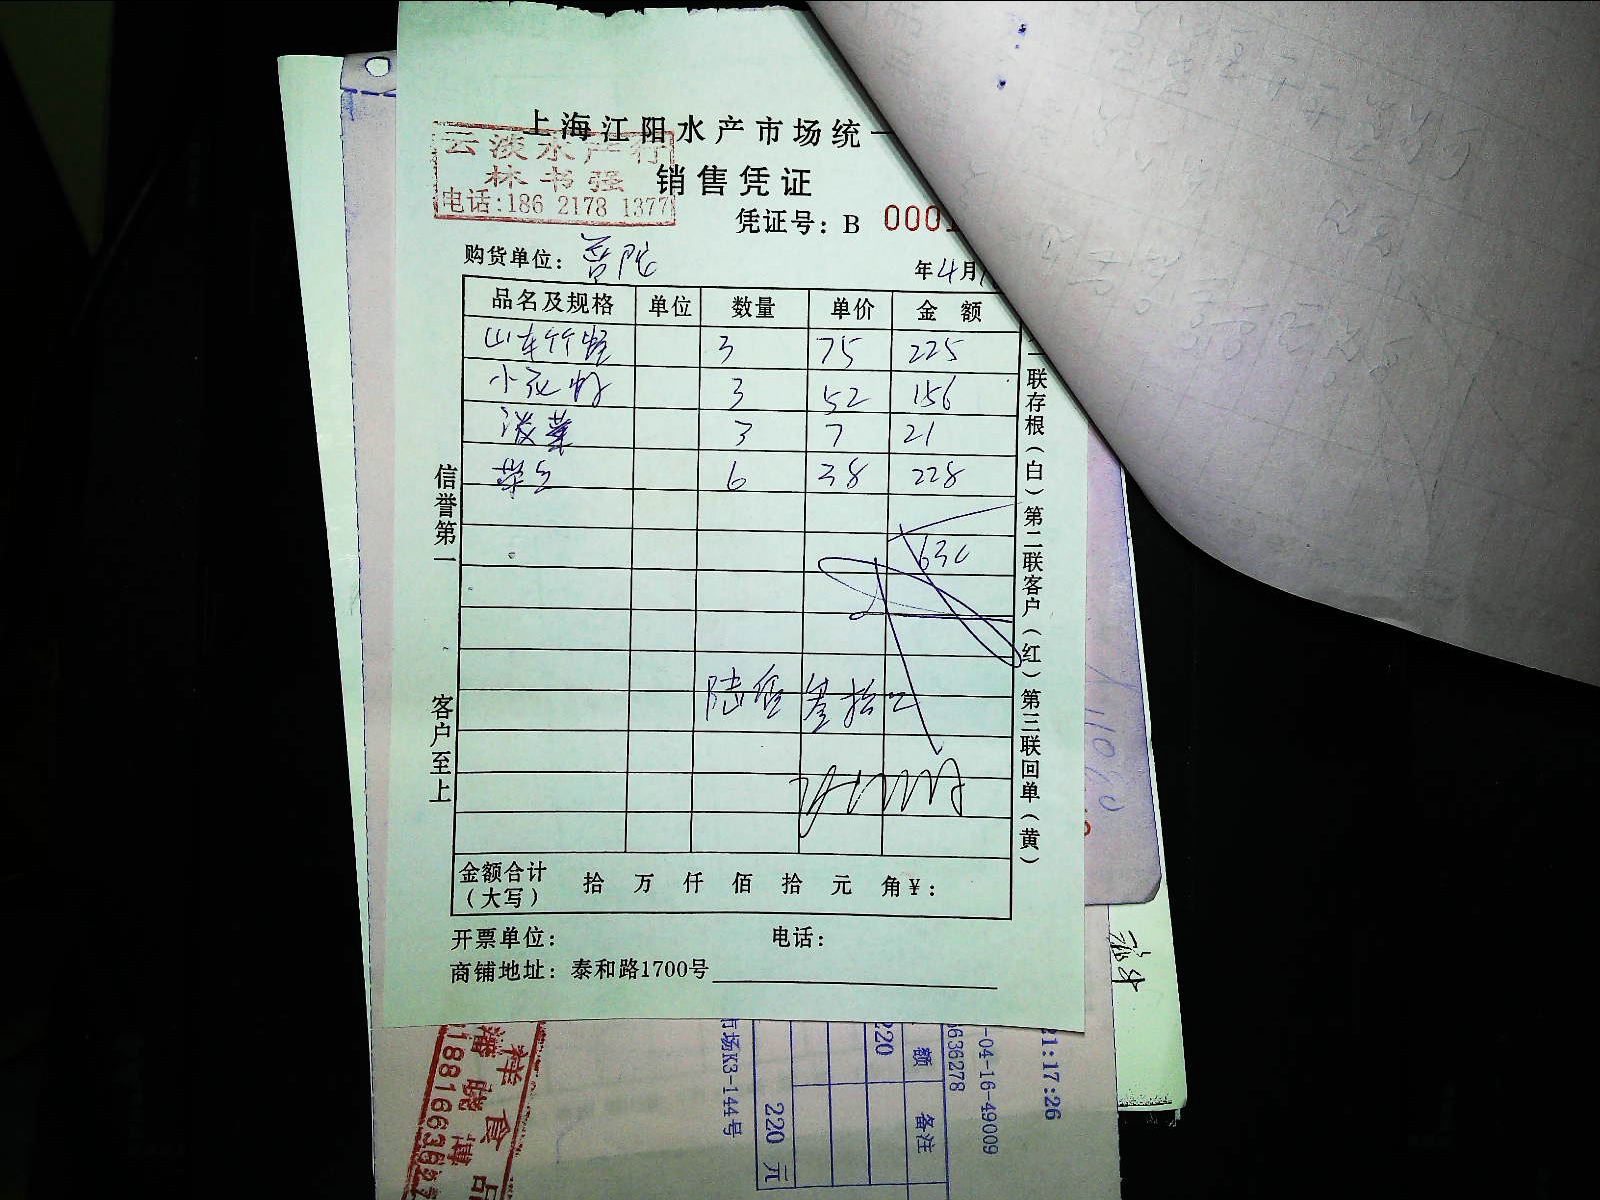 上海江阳水产市场统一
云淡水产行
林书强
电话:186 2178 1377
销售凭证
凭证号: B 000
购货单位: 普陀
年4月
品名及规格 单位 数量 单价 金 额
山东竹蛏 3 75 225
小花蛤 3 52 156
淡菜 3 7 21
6 38 228
630
陆佰叁拾元
金额合计
(大写)
拾 万 仟 佰 拾 元 角 ¥:
开票单位: 电话:
商铺地址: 泰和路1700号
信誉第一
客户至上
一联存根(白)第二联客户(红)第三联回单(黄)
11060
21:17:26
-04-16-49009
636278
额 备注
220
220 元
市场K3-144号